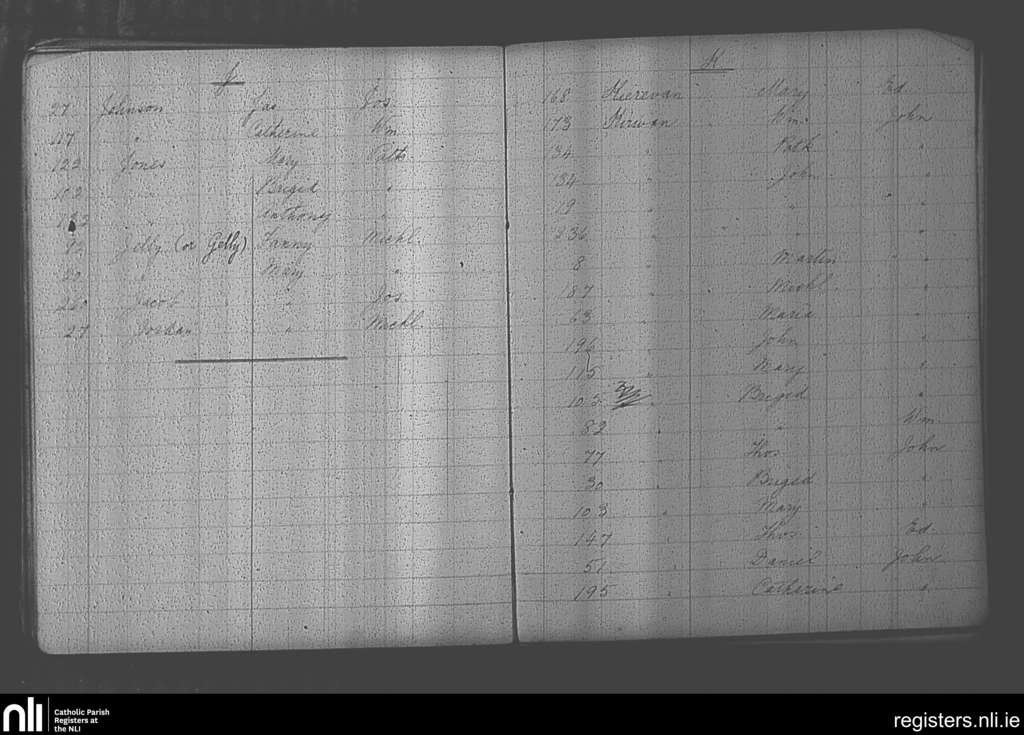 J
27 Johnson Jas Jos
117 " Catherine Wm
122 Jones Mary Patk
102 " Brigid "
" Anthony "
92 Jelly (or Gelly) Fanny Michl
20 " Mary "
260 Jacob " Jos
27 Jordan " Michl
K
168 Kierevan Mary Ed
173 Kirwan Wm. John
134 " Patk "
134 " John "
19 " " "
136 " " "
8 " Martin "
187 " Michl "
63 " Maria "
196 " John "
115 " Mary "
103 " Brigid "
82 " " Wm.
77 " Thos John
30 " Brigid "
103 " Mary "
147 " Thos Ed.
51 " Daniel John
195 " Catherine "
nli
Catholic Parish
Registers at
the NLI
registers.nli.ie